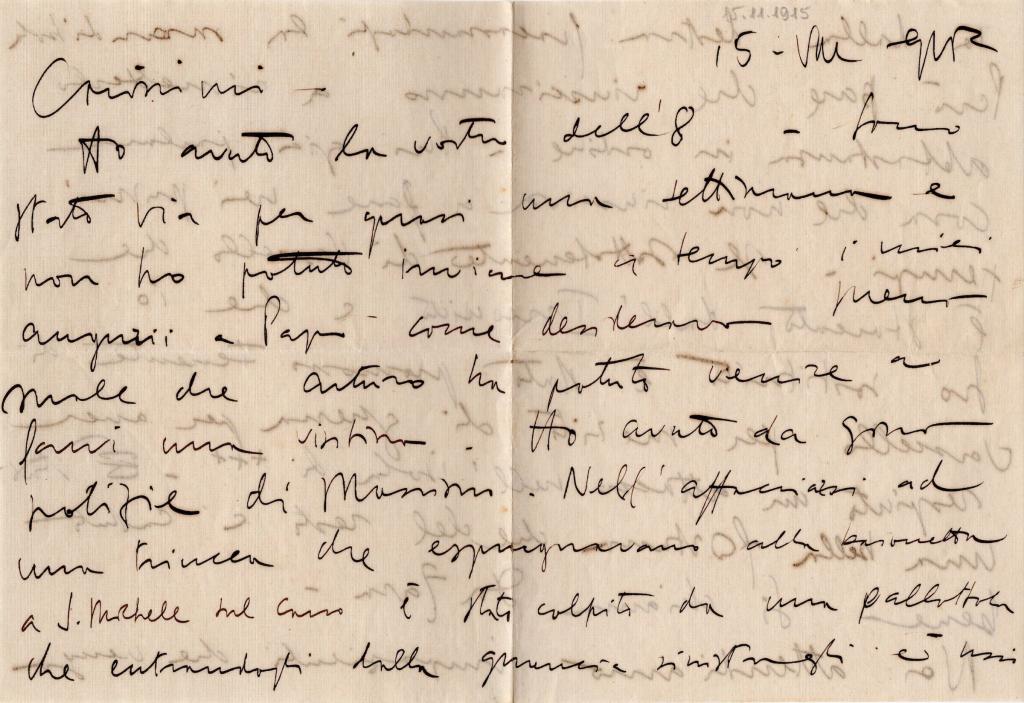 15.11.1915
15 -
Carissimi -
Ho avuto la vostra dell'8 - Sono
stato via per quasi una settimana e
non ho potuto inviare a tempo i miei
augurii a Papà come desideravo meno
male che Arturo ha potuto venire a
farvi una visitina. Ho avuto da Gino
notizie di Massimo. Nell'affacciarsi ad
una trincea che espugnavano alla baionetta
a S. Michele sul Carso è stato colpito da una pallottola
che entrandogli dalla guancia sinistra gli è usci